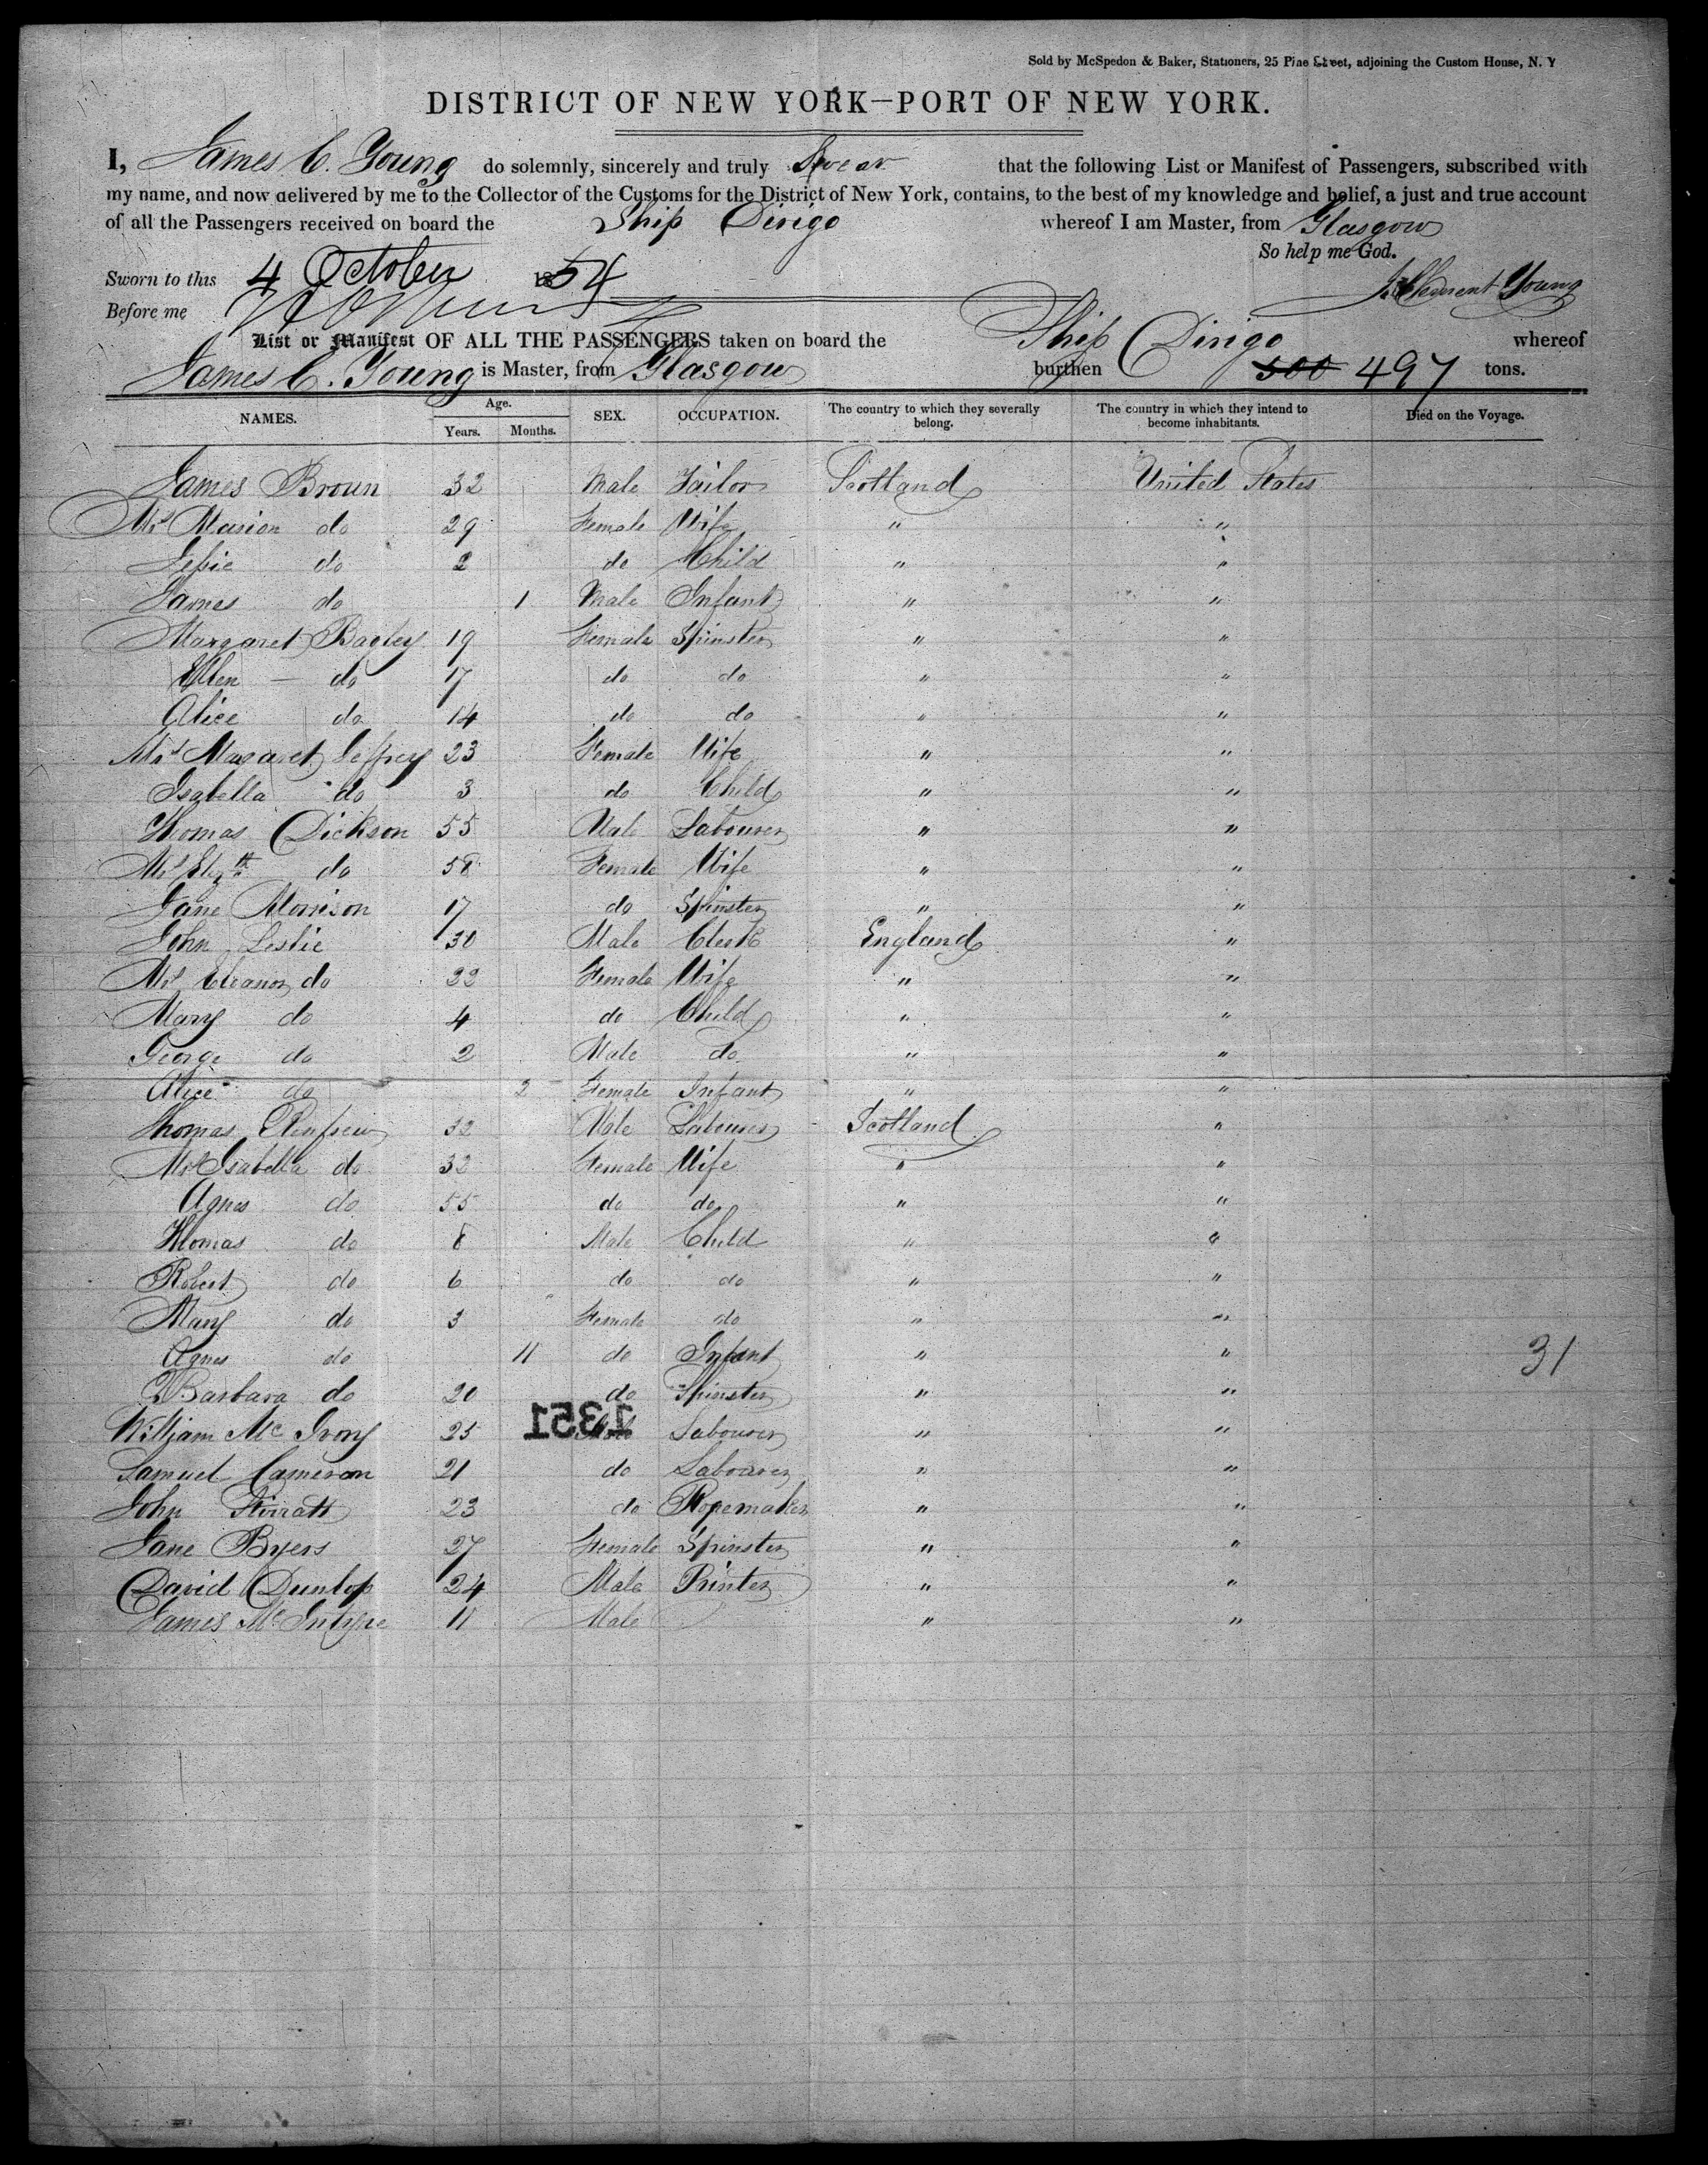 Sold by McSpedon & Baker, Stationers, 25 Pine Street, adjoining the Custom House, N. Y
DISTRICT OF NEW YORK—PORT OF NEW YORK.
I, James C. Young do solemnly, sincerely and truly Swear that the following List or Manifest of Passengers, subscribed with
my name, and now delivered by me to the Collector of the Customs for the District of New York, contains, to the best of my knowledge and belief, a just and true account
of all the Passengers received on board the Ship Dirigo whereof I am Master, from Glasgow
So help me God.
Sworn to this 4 October 1854 J. Clement Young
Before me
List or Manifest OF ALL THE PASSENGERS taken on board the Ship Dirigo whereof
James C. Young is Master, from Glasgow burthen 500 497 tons.
NAMES. Age. Years. Months. SEX. OCCUPATION. The country to which they severally belong. The country in which they intend to become inhabitants. Died on the Voyage.
James Broun 32 Male Tailor Scotland United States
Mrs Marion do 29 Female Wife " "
Jessie do 2 do Child " "
James do 1 Male Infant " "
Margaret Bagley 19 Female Spinster " "
Ellen — do 17 do do " "
Alice do 14 do do " "
Mrs Margaret Jeffrey 23 Female Wife " "
Isabella do 3 do Child " "
Thomas Dickson 55 Male Labourer " "
Mrs Elizth do 58 Female Wife " "
Jane Morrison 17 do Spinster " "
John Leslie 30 Male Clerk England "
Mrs Eleanor do 22 Female Wife " "
Mary do 4 do Child " "
George do 2 Male do " "
Alice do 2 Female Infant " "
Thomas Renfrew 32 Male Labourer Scotland "
Mrs Isabella do 32 Female Wife " "
Agnes do 55 do do " "
Thomas do 8 Male Child " "
Robert do 6 do do " "
Mary do 3 Female do " "
Agnes do 11 do Infant " " 31
Barbara do 20 do Spinster " "
1351
William Mc Irony 25 Male Labourer " "
Samuel Cameron 21 do Labourer " "
John 23 do Ropemaker " "
Jane Byers 27 Female Spinster " "
David Dunlop 24 Male Printer " "
James Mc Intyre 11 Male " "